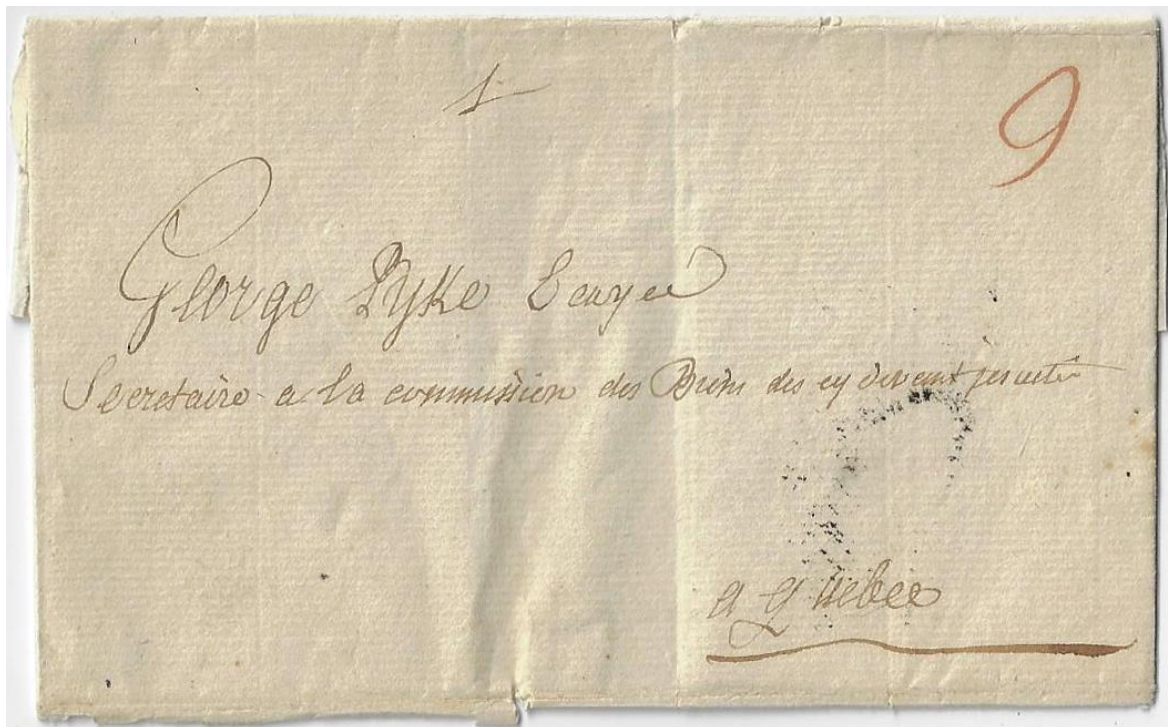 1
9
George Pyke Ecuyer
Secretaire a la commission des Biens des cy devant jesuites
a Quebec